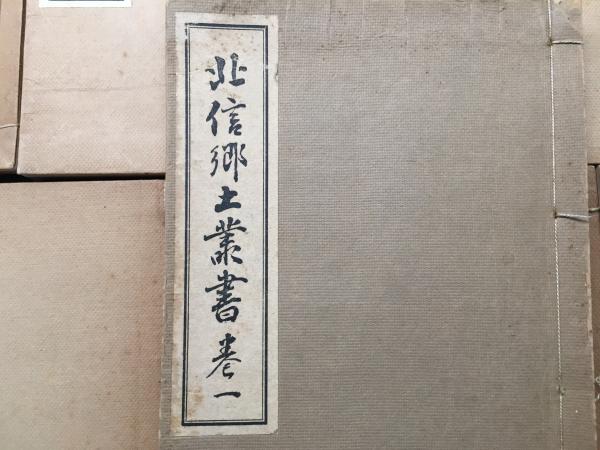 北信郷土叢書巻一